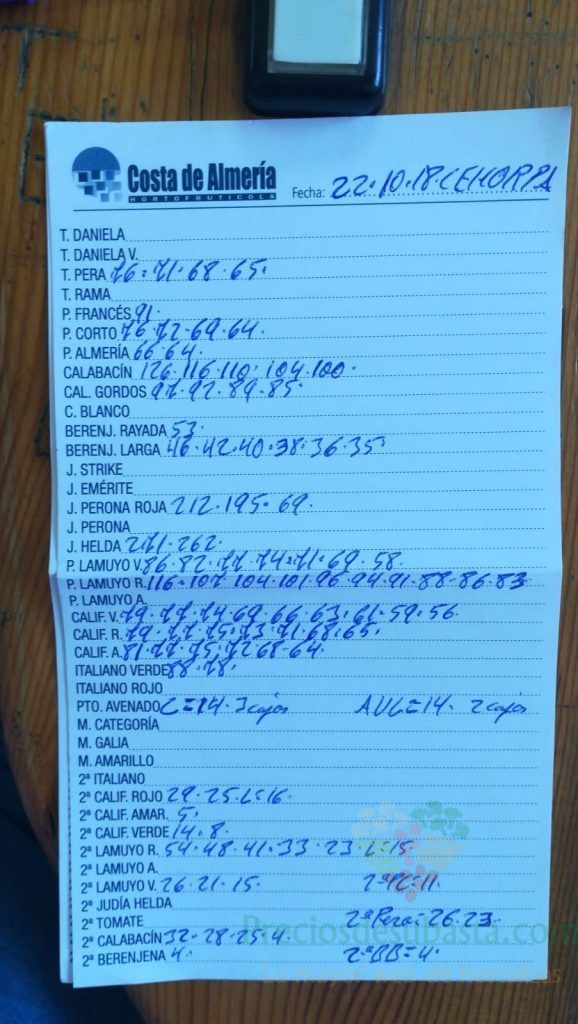 Costa de Almería
HORTOFRUTICOLA
Fecha: 22·10·18·CEHORPA
T. DANIELA
T. DANIELA V.
T. PERA 76·71·68·65·
T. RAMA
P. FRANCÉS 91·
P. CORTO 76·72·69·64·
P. ALMERÍA 66·64·
CALABACÍN 126·116·110·104·100·
CAL. GORDOS 97·92·89·85·
C. BLANCO
BERENJ. RAYADA 53·
BERENJ. LARGA 46·42·40·38·36·35·
J. STRIKE
J. EMÉRITE
J. PERONA ROJA 212·195·69·
J. PERONA
J. HELDA 271·262·
P. LAMUYO V. 86·82·77·74·71·69·58·
P. LAMUYO R. 116·107·104·101·96·94·91·88·86·83
P. LAMUYO A.
CALIF. V. 79·77·74·69·66·63·61·59·56
CALIF. R. 79·77·75·73·71·68·65·
CALIF. A. 81·77·75·72·68·64·
ITALIANO VERDE 88·78·
ITALIANO ROJO
PTO. AVENADO C=14·3 cajas AVL=14· 2 cajas
M. CATEGORÍA
M. GALIA
M. AMARILLO
2ª ITALIANO
2ª CALIF. ROJO 29·25·L=16·
2ª CALIF. AMAR. 5·
2ª CALIF. VERDE 14·8·
2ª LAMUYO R. 54·48·41·33·23·L=15·
2ª LAMUYO A.
2ª LAMUYO V. 26·21·15·
2ª JUDÍA HELDA
2ª TOMATE 2ª Pera: 26·23·
Preciosdesubasta.com
2ª CALABACÍN 32·28·25·4·
2ª BERENJENA 4· 2ª BB=4·